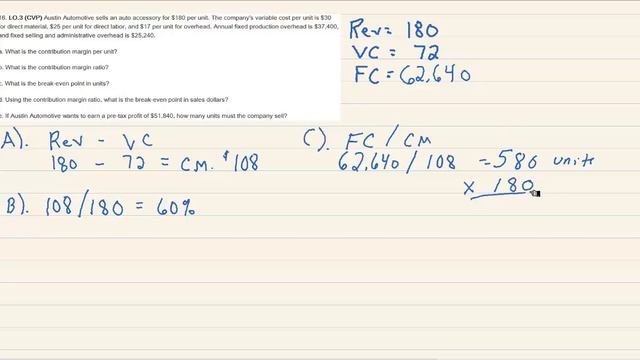 16. LO.3 (CVP) Austin Automotive sells an auto accessory for $180 per unit. The company's variable cost per unit is $30
or direct material, $25 per unit for direct labor, and $17 per unit for overhead. Annual fixed production overhead is $37,400,
and fixed selling and administrative overhead is $25,240.
a. What is the contribution margin per unit?
b. What is the contribution margin ratio?
c. What is the break-even point in units?
d. Using the contribution margin ratio, what is the break-even point in sales dollars?
e. If Austin Automotive wants to earn a pre-tax profit of $51,840, how many units must the company sell?
Rev = 180
VC = 72
FC = 62,640
A). Rev - VC
180 - 72 = CM. $108
B). 108/180 = 60%
C). FC / CM
62,640 / 108 = 580 units
x 180